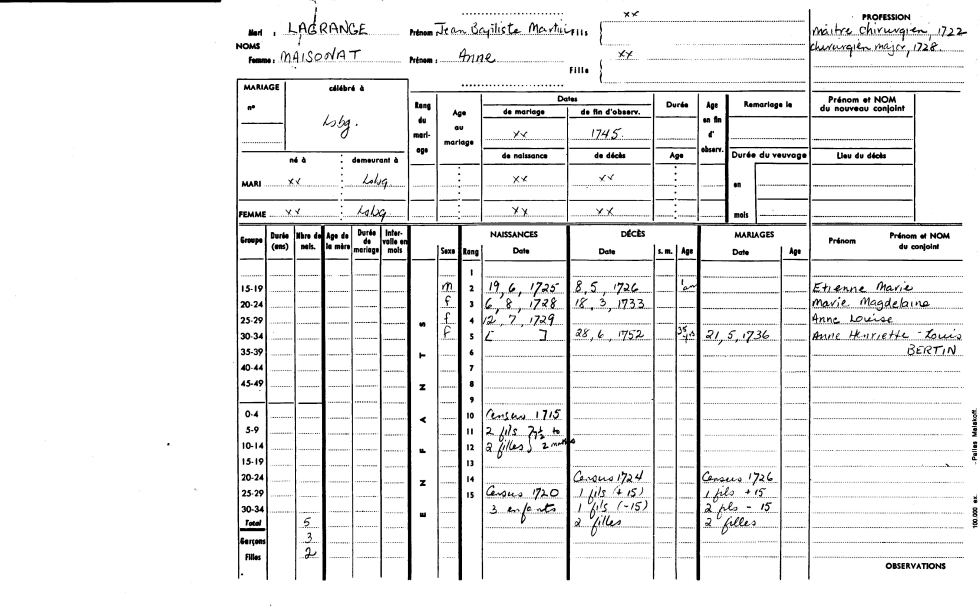 xx
Mari : LAGRANGE Prénom : Jean Baptiste Martin Fils
NOMS
Femme : MAISONAT Prénom : Anne xx
Fille
PROFESSION
maître chirurgien, 1722
chirurgien major, 1728.
MARIAGE célébré à
n°
Lsbg.
né à demeurant à
MARI xx Lsbg
FEMME xx Lsbg
Rang du mari- age
Age au mariage
Dates
de mariage de fin d'observ.
xx 1745.
de naissance de décès
xx xx
xx xx
Durée
Age
Age en fin d' observ.
Remariage le
Durée du veuvage
en
mois
Prénom et NOM
du nouveau conjoint
Lieu du décès
Groupe Durée (ans) Nbre de nais. Age de la mère Durée de mariage Inter- valle en mois
ENFANTS
Sexe Rang NAISSANCES Date DÉCÈS Date s. m. Age MARIAGES Date Age Prénom Prénom et NOM du conjoint
1
15-19 m 2 19, 6, 1725 8, 5, 1726 1 an Etienne Marie
20-24 f 3 6, 8, 1728 18, 3, 1733 Marie Magdelaine
25-29 f 4 12, 7, 1729 Anne Louise
30-34 f 5 [ ] 28, 6, 1752 35 yrs 21, 5, 1736 Anne Henriette - Louis
35-39 6 BERTIN
40-44 7
45-49 8
9
0-4 10 Census 1715
5-9 11 2 fils 7½ to
10-14 12 2 filles 2 months
15-19 13
20-24 14 Census 1724 Census 1726
25-29 15 Census 1720 1 fils (+15) 1 fils +15
30-34 3 enfants 1 fils (-15) 2 fils - 15
Total 5 2 filles 2 filles
Garçons 3
Filles 2
OBSERVATIONS
100.000 ex. -Pailas Malakoff.